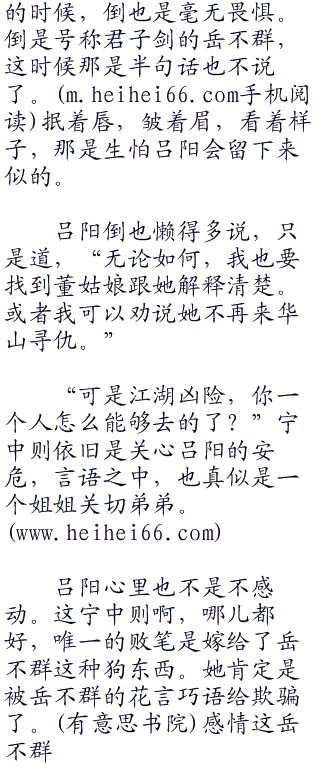 的时候，倒也是毫无畏惧。
倒是号称君子剑的岳不群，
这时候那是半句话也不说
了。(m.heihei66.com手机阅
读)抿着唇，皱着眉，看着样
子，那是生怕吕阳会留下来
似的。
吕阳倒也懒得多说，只
是道，“无论如何，我也要
找到董姑娘跟她解释清楚。
或者我可以劝说她不再来华
山寻仇。”
“可是江湖凶险，你一
个人怎么能够去的了？”宁
中则依旧是关心吕阳的安
危，言语之中，也真似是一
个姐姐关切弟弟。
(www.heihei66.com)
吕阳心里也不是不感
动。这宁中则啊，哪儿都
好，唯一的败笔是嫁给了岳
不群这种狗东西。她肯定是
被岳不群的花言巧语给欺骗
了。(有意思书院)感情这岳
不群